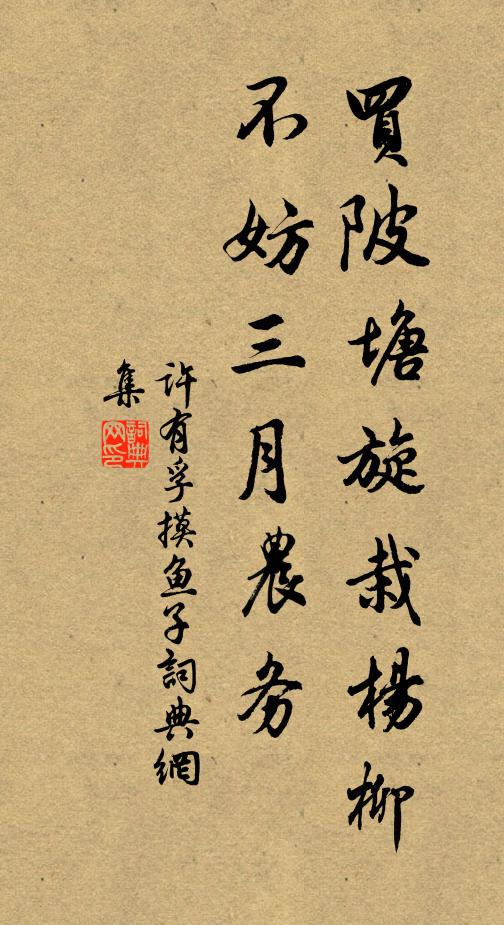 買陂塘旋栽楊柳
不妨三月農务
许有孚摸鱼子詞典網
集
詞典
网印